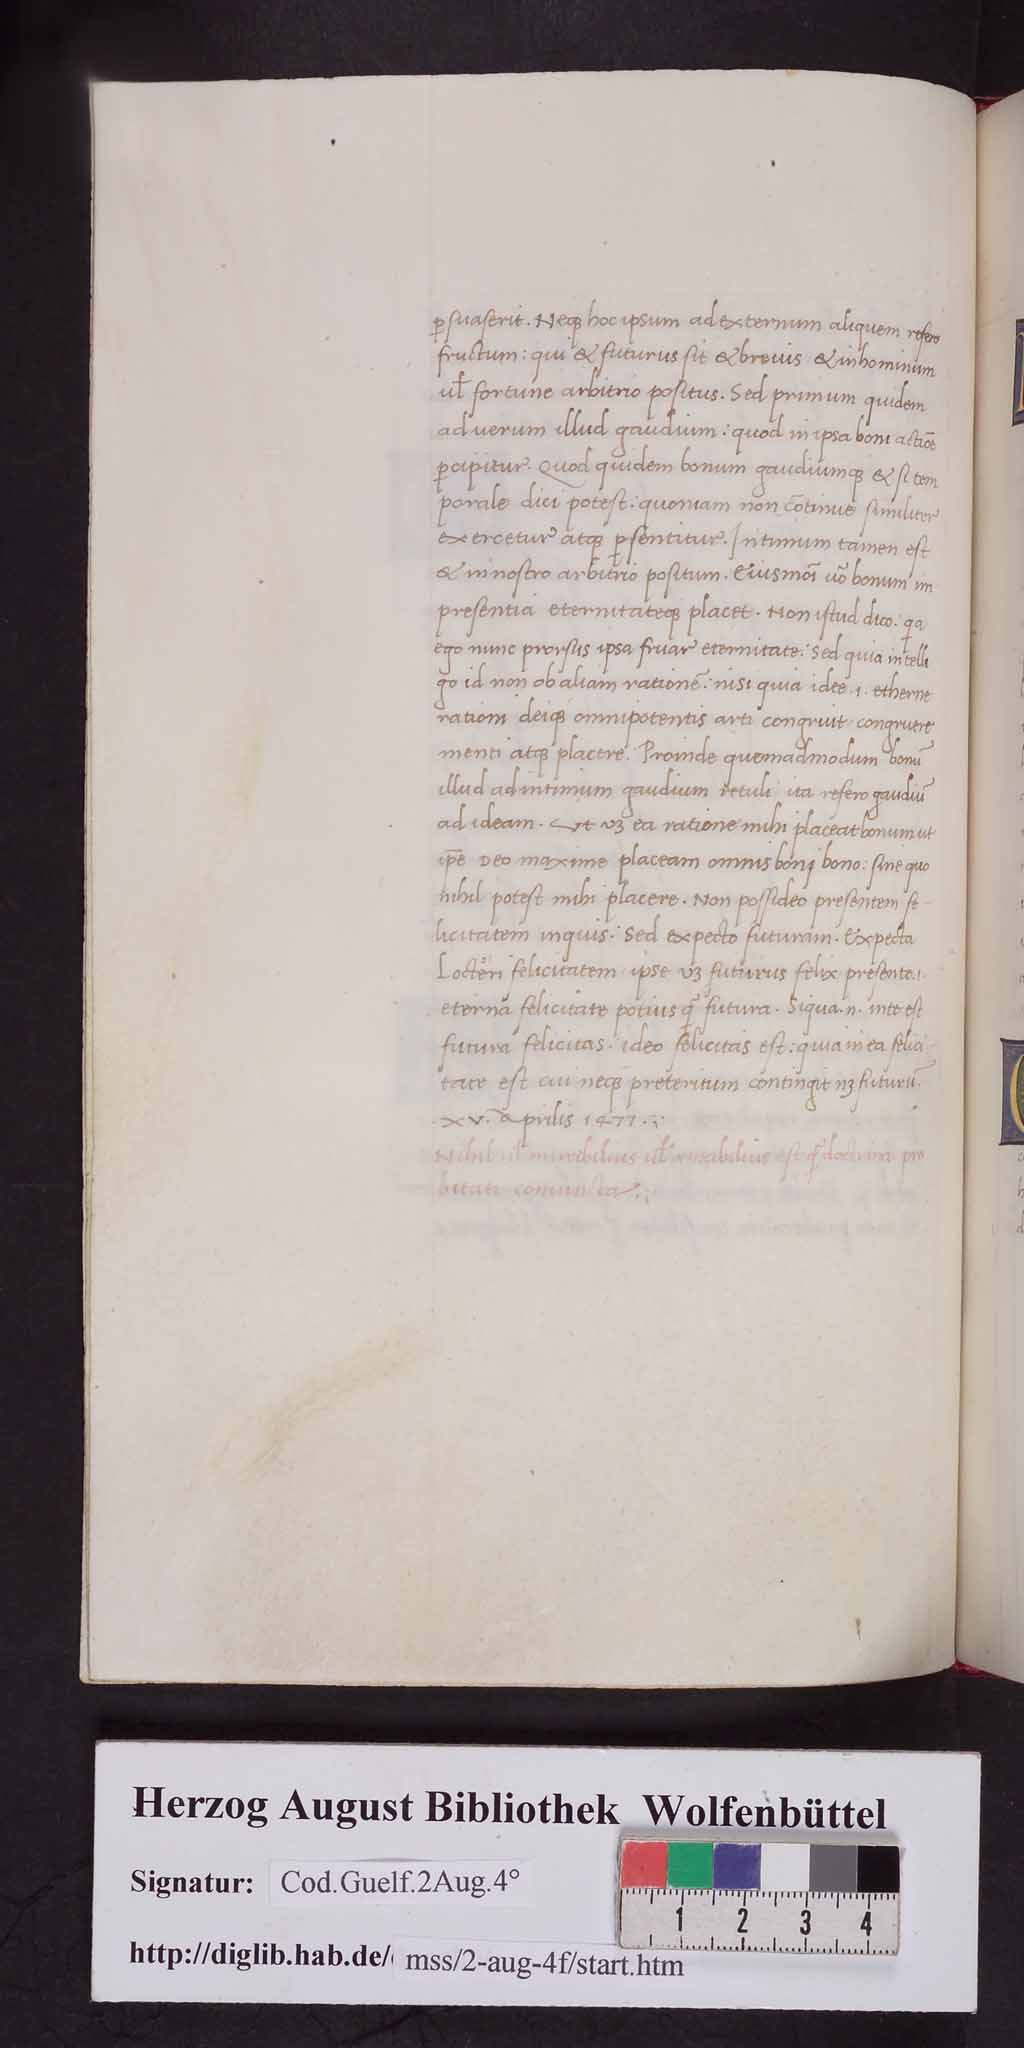 ꝑsuaserit. Neqꝫ hoc ipsum ad externum aliquem refero
fructum: qui & futurus sit & brevis & in hominum
ul̄ fortune arbitrio positus. Sed primum quidem
ad verum illud gaudium: quod in ipsa boni actiōe
ꝑcipitur. Quod quidem bonum gaudiumqꝫ & si tem
porale dici potest: quoniam non cōtinue similiter
exercetur atqꝫ ꝑsentitur. Intimum tamen est
& in nostro arbitrio positum. Eiusmōi uō bonum im
presentia eternitateqꝫ placet. Non istud dico: qa
ego nunc prorsus ipsa fruar eternitate: Sed quia intelli
go id non ob aliam rationē: nisi quia idee .i. etherne
rationi deiqꝫ omnipotentis arti congruit congruere
menti atqꝫ placere. Proinde quemadmodum bonū
illud ad intimum gaudium retuli ita refero gaudiū
ad ideam. Ut uꝫ ea ratione mihi placeat bonum ut
ip̄e Deo maxime placeam omnis boni bono: sine quo
nihil potest mihi placere. Non possideo presentem fe-
licitatem inquis: Sed expecto futuram. Expecta
Locteri felicitatem ipse uꝫ futurus felix presente .i.
eterna felicitate potius q̄ futura. Siqua .n. inte est
futura felicitas: ideo felicitas est: quia in ea felici-
tate est cui neqꝫ preteritum contingit nꝫ futurū.
.xv. Aprilis 1477.
Nihil ul̄ mirabilius ul̄ amabilius est q̄ doctrina pro
bitati coniuncta.
Herzog August Bibliothek Wolfenbüttel
Signatur: Cod.Guelf.2Aug.4°
1 2 3 4
http://diglib.hab.de/ mss/2-aug-4f/start.htm